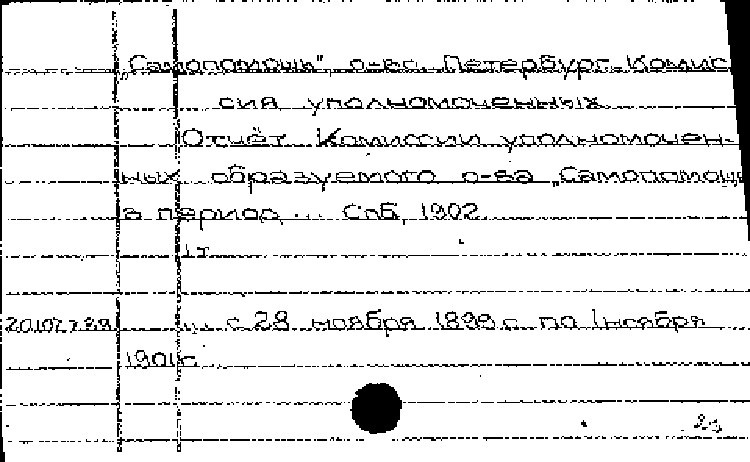 „Самопомощь", о-во. Петербург. Комис
сия уполномоченных
Отчёт Комиссии уполномочен-
ных образуемого о-ва „Самопомощь
в период ... СПб, 1902
1 т
... с 28 ноября 1899 г. по 1 ноября
1901 г